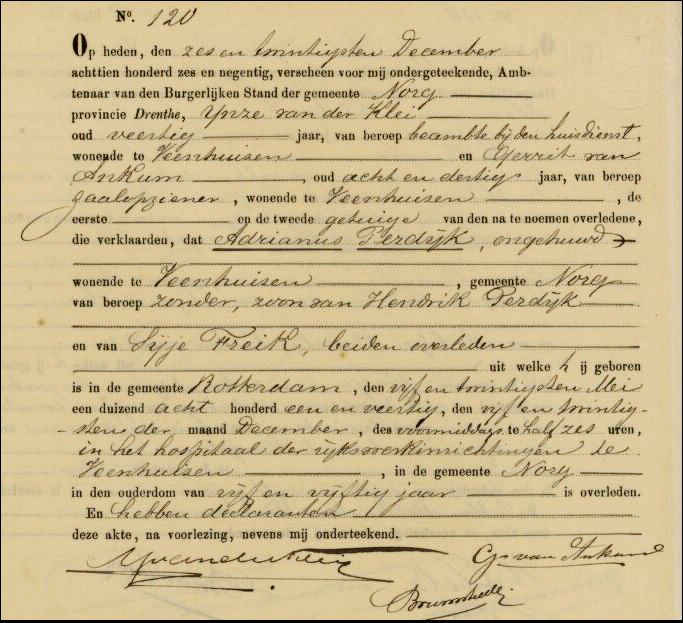 No. 120
Op heden, den zes en twintigsten December
achttien honderd zes en negentig, verscheen voor mij ondergeteekende, Amb-
tenaar van den Burgerlijken Stand der gemeente Norg
provincie Drenthe, Ynze van der Klei
oud veertig jaar, van beroep beambte bij den huisdienst,
wonende te Veenhuisen en Gerrit van
Ankum, oud acht en dertig jaar, van beroep
zaalopziener, wonende te Veenhuisen, de
eerste en de tweede getuige van den na te noemen overledene,
die verklaarden, dat Adrianus Perdijk, ongehuwd
wonende te Veenhuisen, gemeente Norg
van beroep zonder, zoon van Hendrik Perdijk
en van Sijje Freik, beiden overleden
uit welke hij geboren
is in de gemeente Rotterdam, den vijf en twintigsten Mei
een duizend acht honderd een en veertig, den vijf en twintig-
sten der maand December, des voormiddags te half zes uren,
in het hospitaal der rijkswerkinrichtingen te
Veenhuisen, in de gemeente Norg
in den ouderdom van vijf en vijftig jaar is overleden.
En hebben declaranten
deze akte, na voorlezing, nevens mij onderteekend.
YvanderKlei G. van Ankum